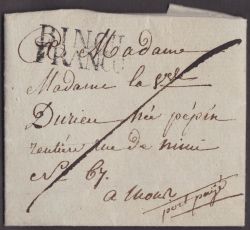 BINCH
FRANCO
A Madame
Madame la vve
Durieu née pépin
rentière rue de nimi
No 67.
a mons
port payé